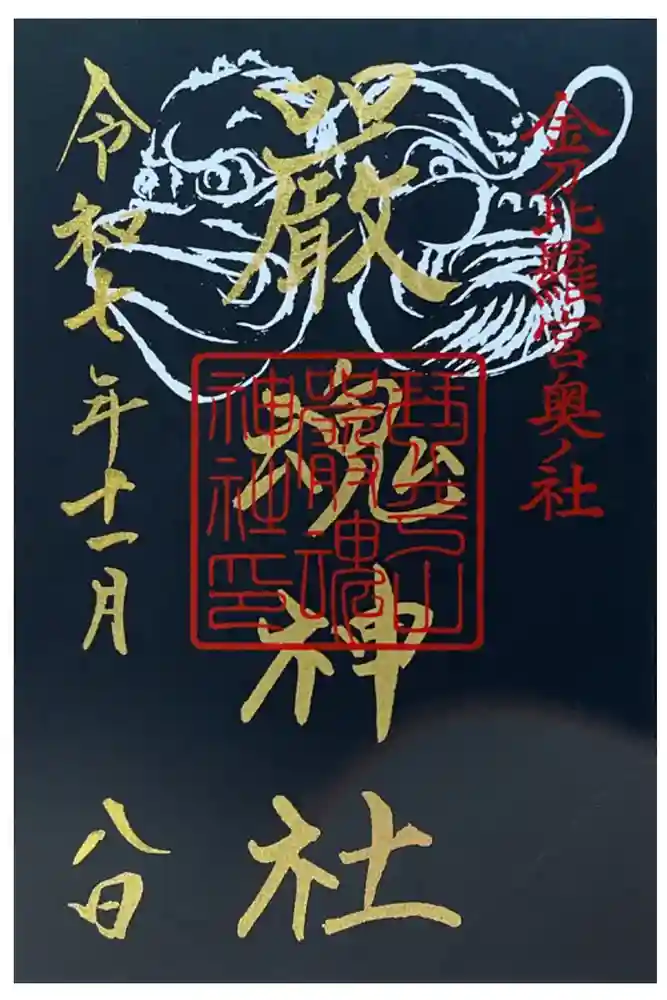 金刀比羅宮奥ノ社
嚴魂神社
琴平山
嚴魂
神社印
令和七年十一月八日